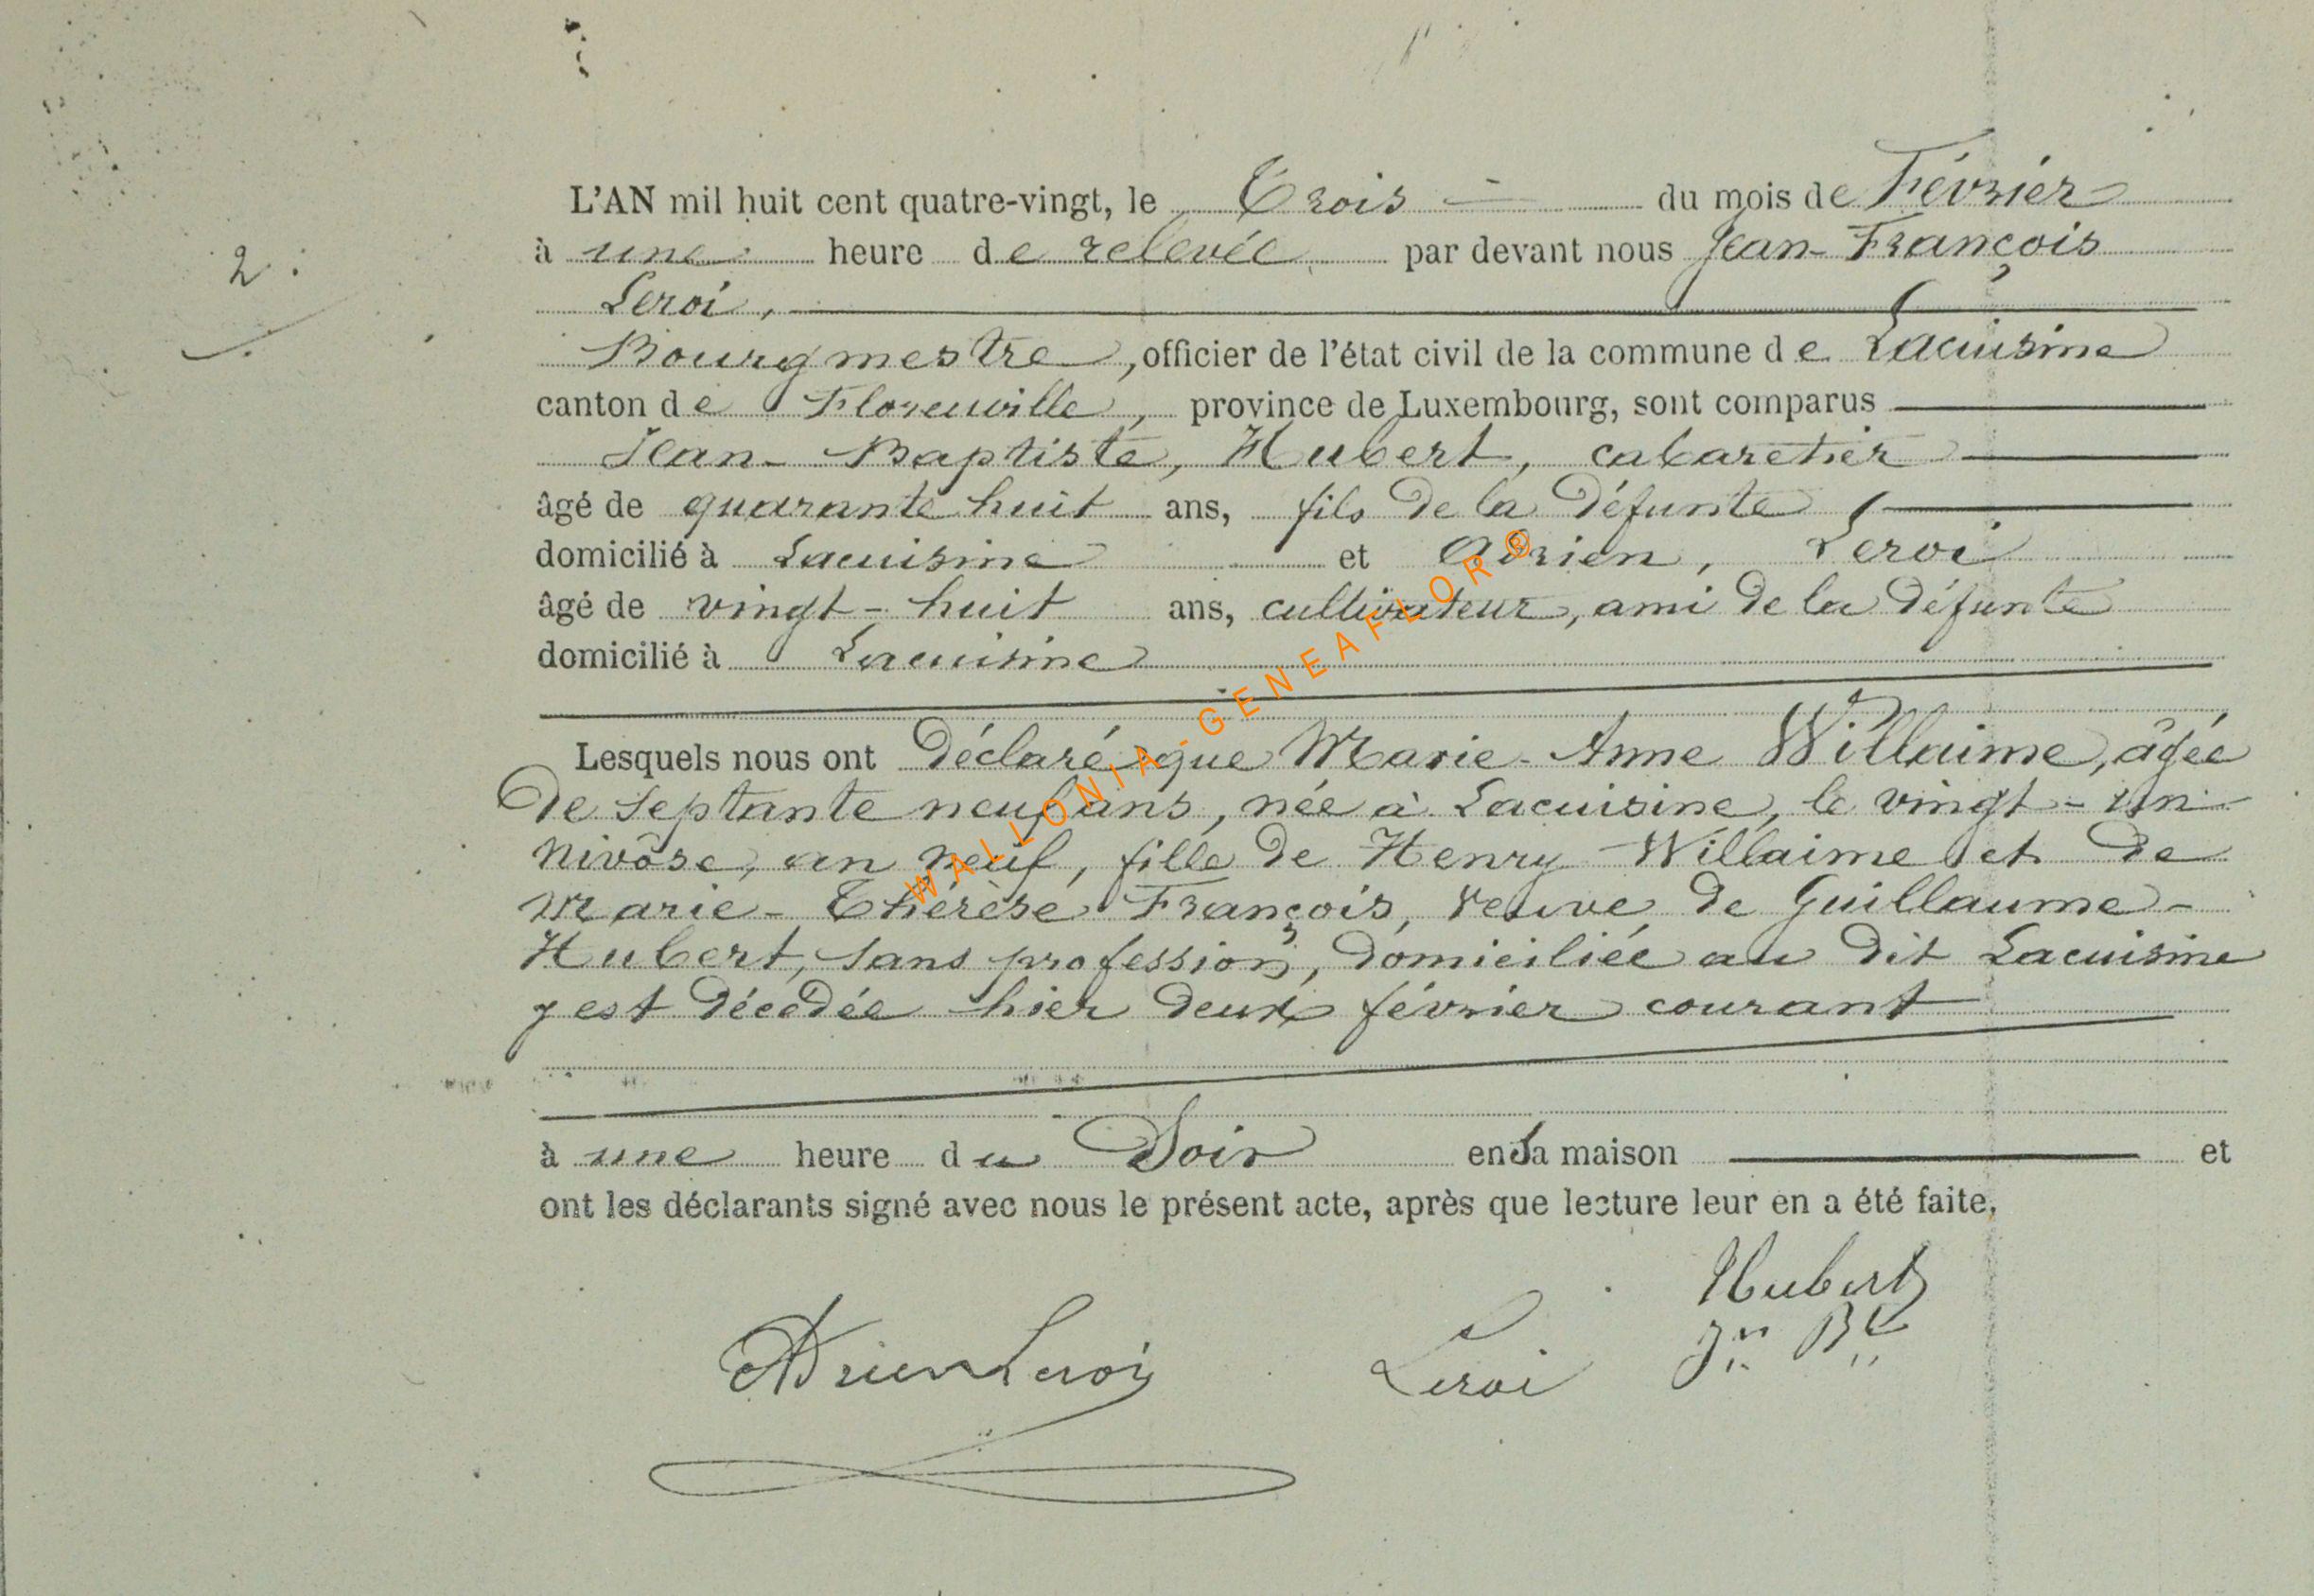 L'AN mil huit cent quatre-vingt, le Trois du mois de Février
à une heure de relevée par devant nous Jean-François
2.
Leroi,
Bourgmestre, officier de l'état civil de la commune de Lacuisine
canton de Florenville, province de Luxembourg, sont comparus
Jean-Baptiste, Hubert, cabaretier
âgé de quarante huit ans, fils de la défunte
domicilié à Lacuisine et Adrien, Leroi
âgé de vingt-huit ans, cultivateur, ami de la défunte
domicilié à Lacuisine
Lesquels nous ont déclaré que Marie-Anne Willaime, âgée
de septante neuf ans, née à Lacuisine, le vingt-un
nivôse, an neuf, fille de Henry Willaime et de
Marie-Thérèse François, veuve de Guillaume-
Hubert, sans profession, domiciliée au dit Lacuisine
y est décédée hier deux février courant
à une heure du Soir en Sa maison et
ont les déclarants signé avec nous le présent acte, après que lecture leur en a été faite,
Hubert
Adrien Leroi Leroi Jn Bte
WALLONIA-GENEAFLOR®